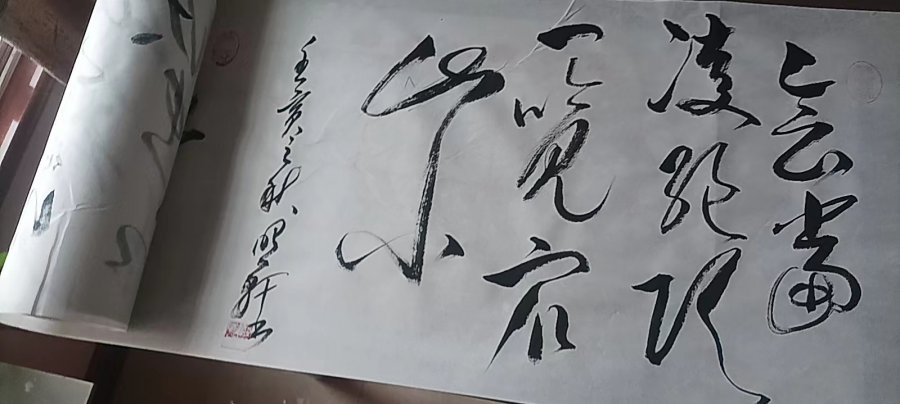 会當
凌绝顶
一览众
山小
壬寅之秋 轩书